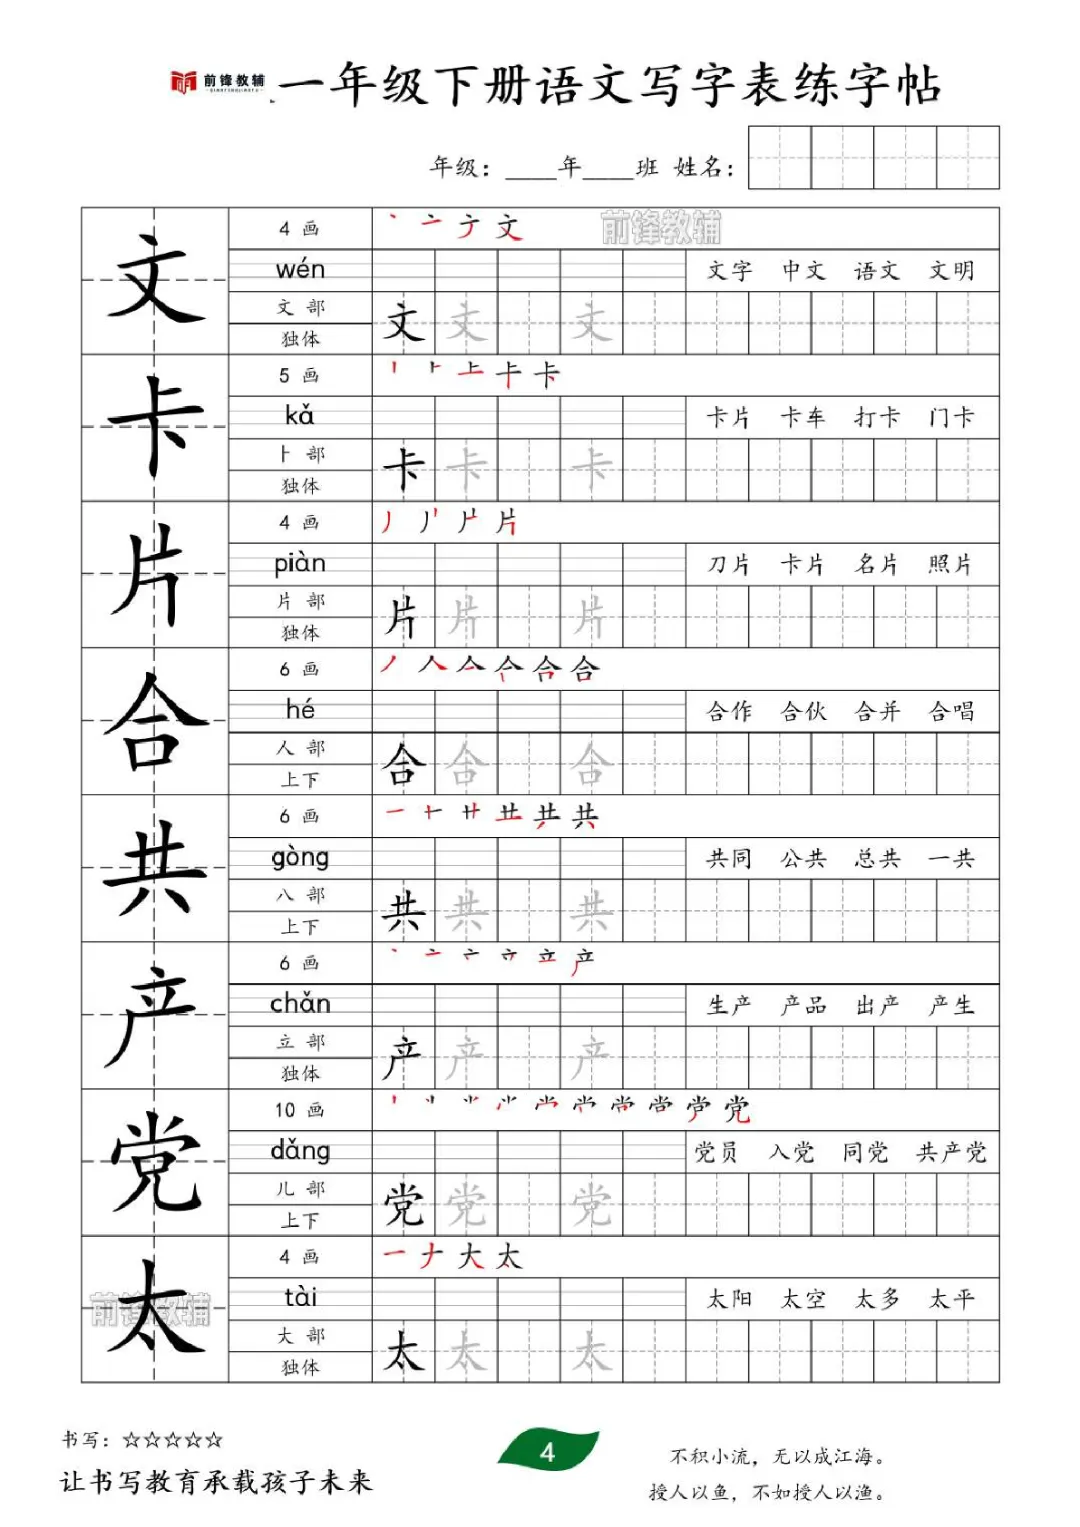 前锋教辅
QIANFENGJIAOFU
一年级下册语文写字表练字帖
年级：____年____班 姓名：
前锋教辅
文
4 画
丶 亠 ナ 文
wén
文字 中文 语文 文明
文 部
独体
文 文 文
卡
5 画
卡
kǎ
卡片 卡车 打卡 门卡
卜 部
独体
卡 卡 卡
片
4 画
片
piàn
刀片 卡片 名片 照片
片 部
独体
片 片 片
合
6 画
丿 人 亼 合 合
hé
合作 合伙 合并 合唱
人 部
上下
合 合 合
共
6 画
一 十 廾 共 共
gòng
共同 公共 总共 一共
八 部
上下
共 共 共
产
6 画
丶 亠 产
chǎn
生产 产品 出产 产生
立 部
独体
产 产 产
党
10 画
党
dǎng
党员 入党 同党 共产党
儿 部
上下
党 党 党
太
4 画
一 ナ 大 太
tài
太阳 太空 太多 太平
大 部
独体
太 太 太
前锋教辅
书写：☆☆☆☆☆
让书写教育承载孩子未来
4
不积小流，无以成江海。
授人以鱼，不如授人以渔。